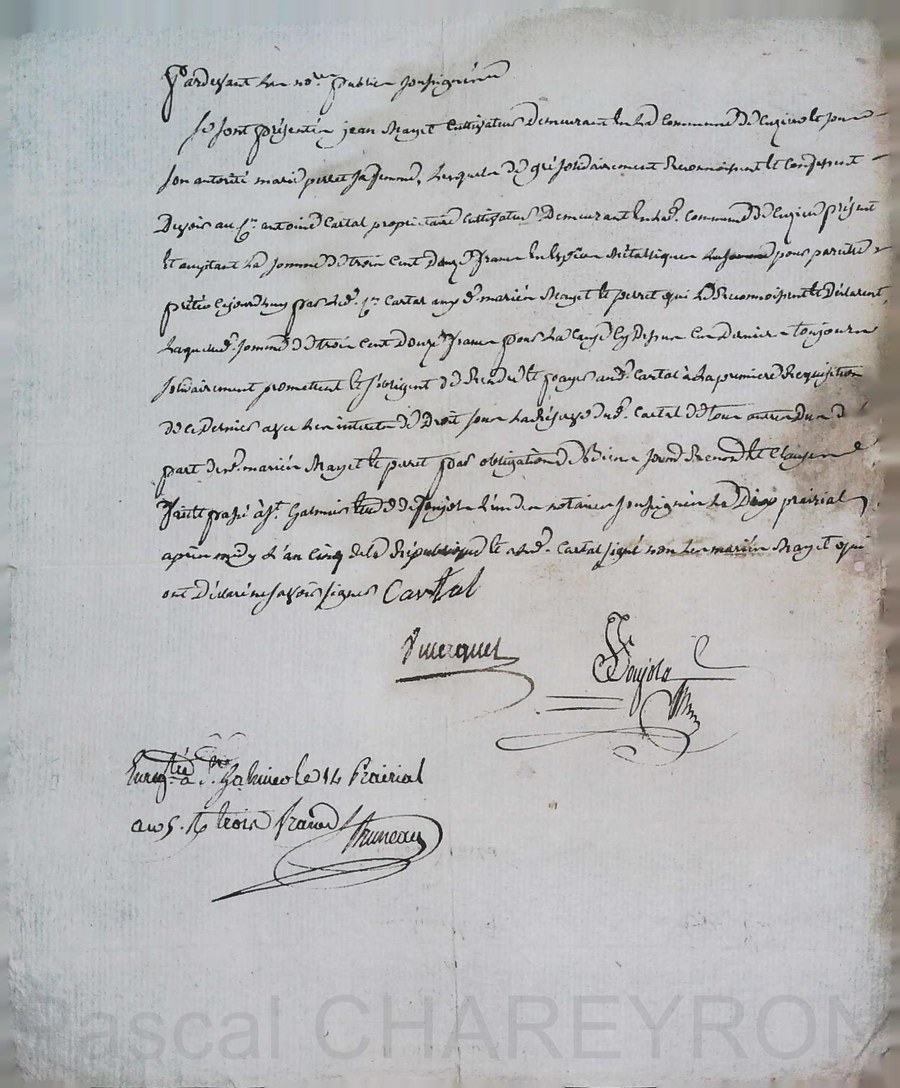 Pardevant les nores publics soussignés
se sont présentés jean Mayet Cultivateur demeurant en la Commune de Cuzieu et sous
son autorité marie perret sa femme, lesquels de gré solidairement Reconnoissent et Confessent
Devoir au Cn antoine Cartal propriétaire Cultivateur Demeurant en lad. Commune de Cuzieu présent
et acceptant la somme de trois Cent douze francs en Espèces Métalliques pour pareille
prêtée cejourd'huy par led. Cn Cartal aux d. mariés Mayet et perret qui le Reconnoissent et Déclarent,
Laquelle d. somme de trois Cent Douze francs pour la Cause cy dessus Ces derniers toujours
solidairement promettent et s'obligent de Rendre et payer aud. Cartal à la première Requisition
de ce Dernier avec les intérêts de Droit sous la Réserve dud. Cartal de tous autres Dus de
part desd. mariés Mayet et perret par obligation de Biens Renon. et Clauses
fait et passé à St. Galmier Etude de l'un des notaires soussignés Le Dix prairial
après midy l'an Cinq de la République et a led. Cartal signé non les mariés Mayet qui
ont Déclaré ne savoir signer Cartal
Pascal CHAREYRON
Enregtré à St. Galmier le 14 Prairial
an 5. R trois francs Bruneau